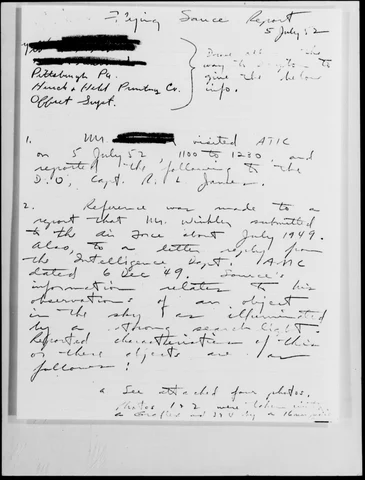 Flying Sauce Report
5 July 52
Drove all the
way to Dayton to
give the below
info.
Pittsburgh Pa.
Offset Supt.
1. Mr. visited ATIC
on 5 July 52, 1100 to 1230, and
reported the following to the
D.O., Capt. R. L. James.
2. Reference was made to a
report that Mr. submitted
to the air force about July 1949.
Also, to a letter reply from
the Intelligence Dept. AMC
dated 6 Dec 49. Source's
information relates to his
observations of an object
in the sky as illuminated
by a strong search light.
Reported characteristics of this
or these objects are as
follows:
a See attached four photos.
Photos 1 & 2 were taken
a and by a 16mm